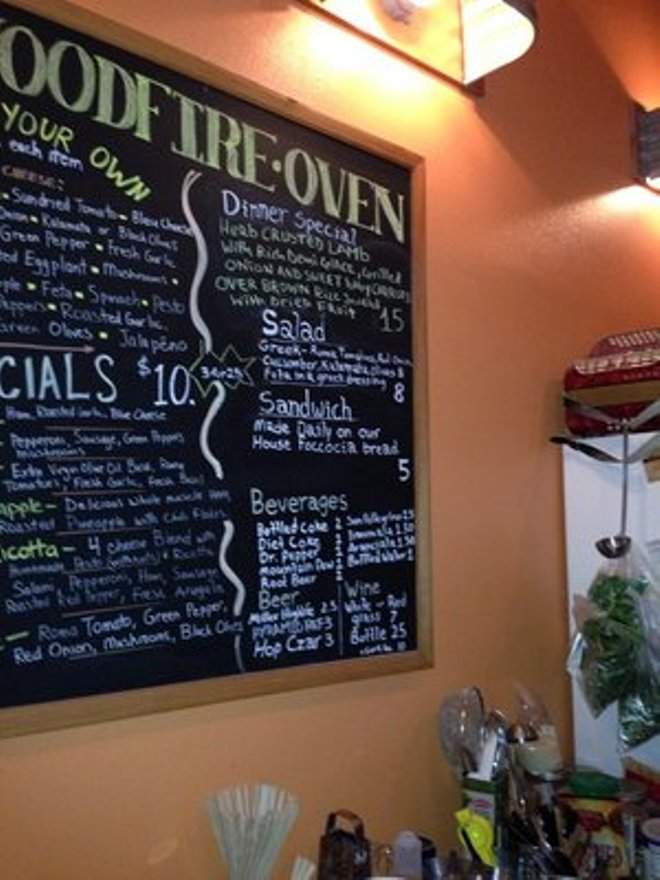 OODFIRE·OVEN
YOUR OWN
each item
CHEESE:
Sundried Tomato - Bleu Cheese
Kalamata or Black Olives
Green Pepper Fresh Garlic
Eggplant Mushrooms
Feta Spinach Pesto
Roasted Garlic
Green Olives Jalapeño
CIALS $10.
Ham, Roasted Garlic, Blue Cheese
Pepperoni, Sausage, Green Peppers
Mushrooms
Extra Virgin Olive Oil Base, Roma
Tomatoes, Fresh Garlic, Fresh Basil
apple - Delicious White
Roasted Pineapple with Chili Flakes
icotta - 4 cheese Blend with
Pesto Ricotta
Salami, Pepperoni, Ham, Sausage
Roasted Red Pepper, Fresh Arugula
Roma Tomato, Green Pepper,
Red Onion, Mushrooms, Black Olives
Dinner Special
Herb CRUSTED LAMB
With Rich Demi Glace, Grilled
ONION AND SWEET
OVER BROWN Rice
With Dried Fruit 15
Salad
Greek - Roma Tomatoes, Red Onion
Cucumber, Kalamata Olives &
Feta in a greek dressing
8
Sandwich
Made Daily on our
House Foccocia bread
5
Beverages
Bottled Coke 2
Diet Coke
Dr. Pepper
Mountain Dew
Root Beer
Limonata 1.50
Aranciata 1.50
Bottled Water 1
Beer
Miller Highlife 2.5
Hop Czar 3
Wine
White - Red
glass 7
Bottle 25